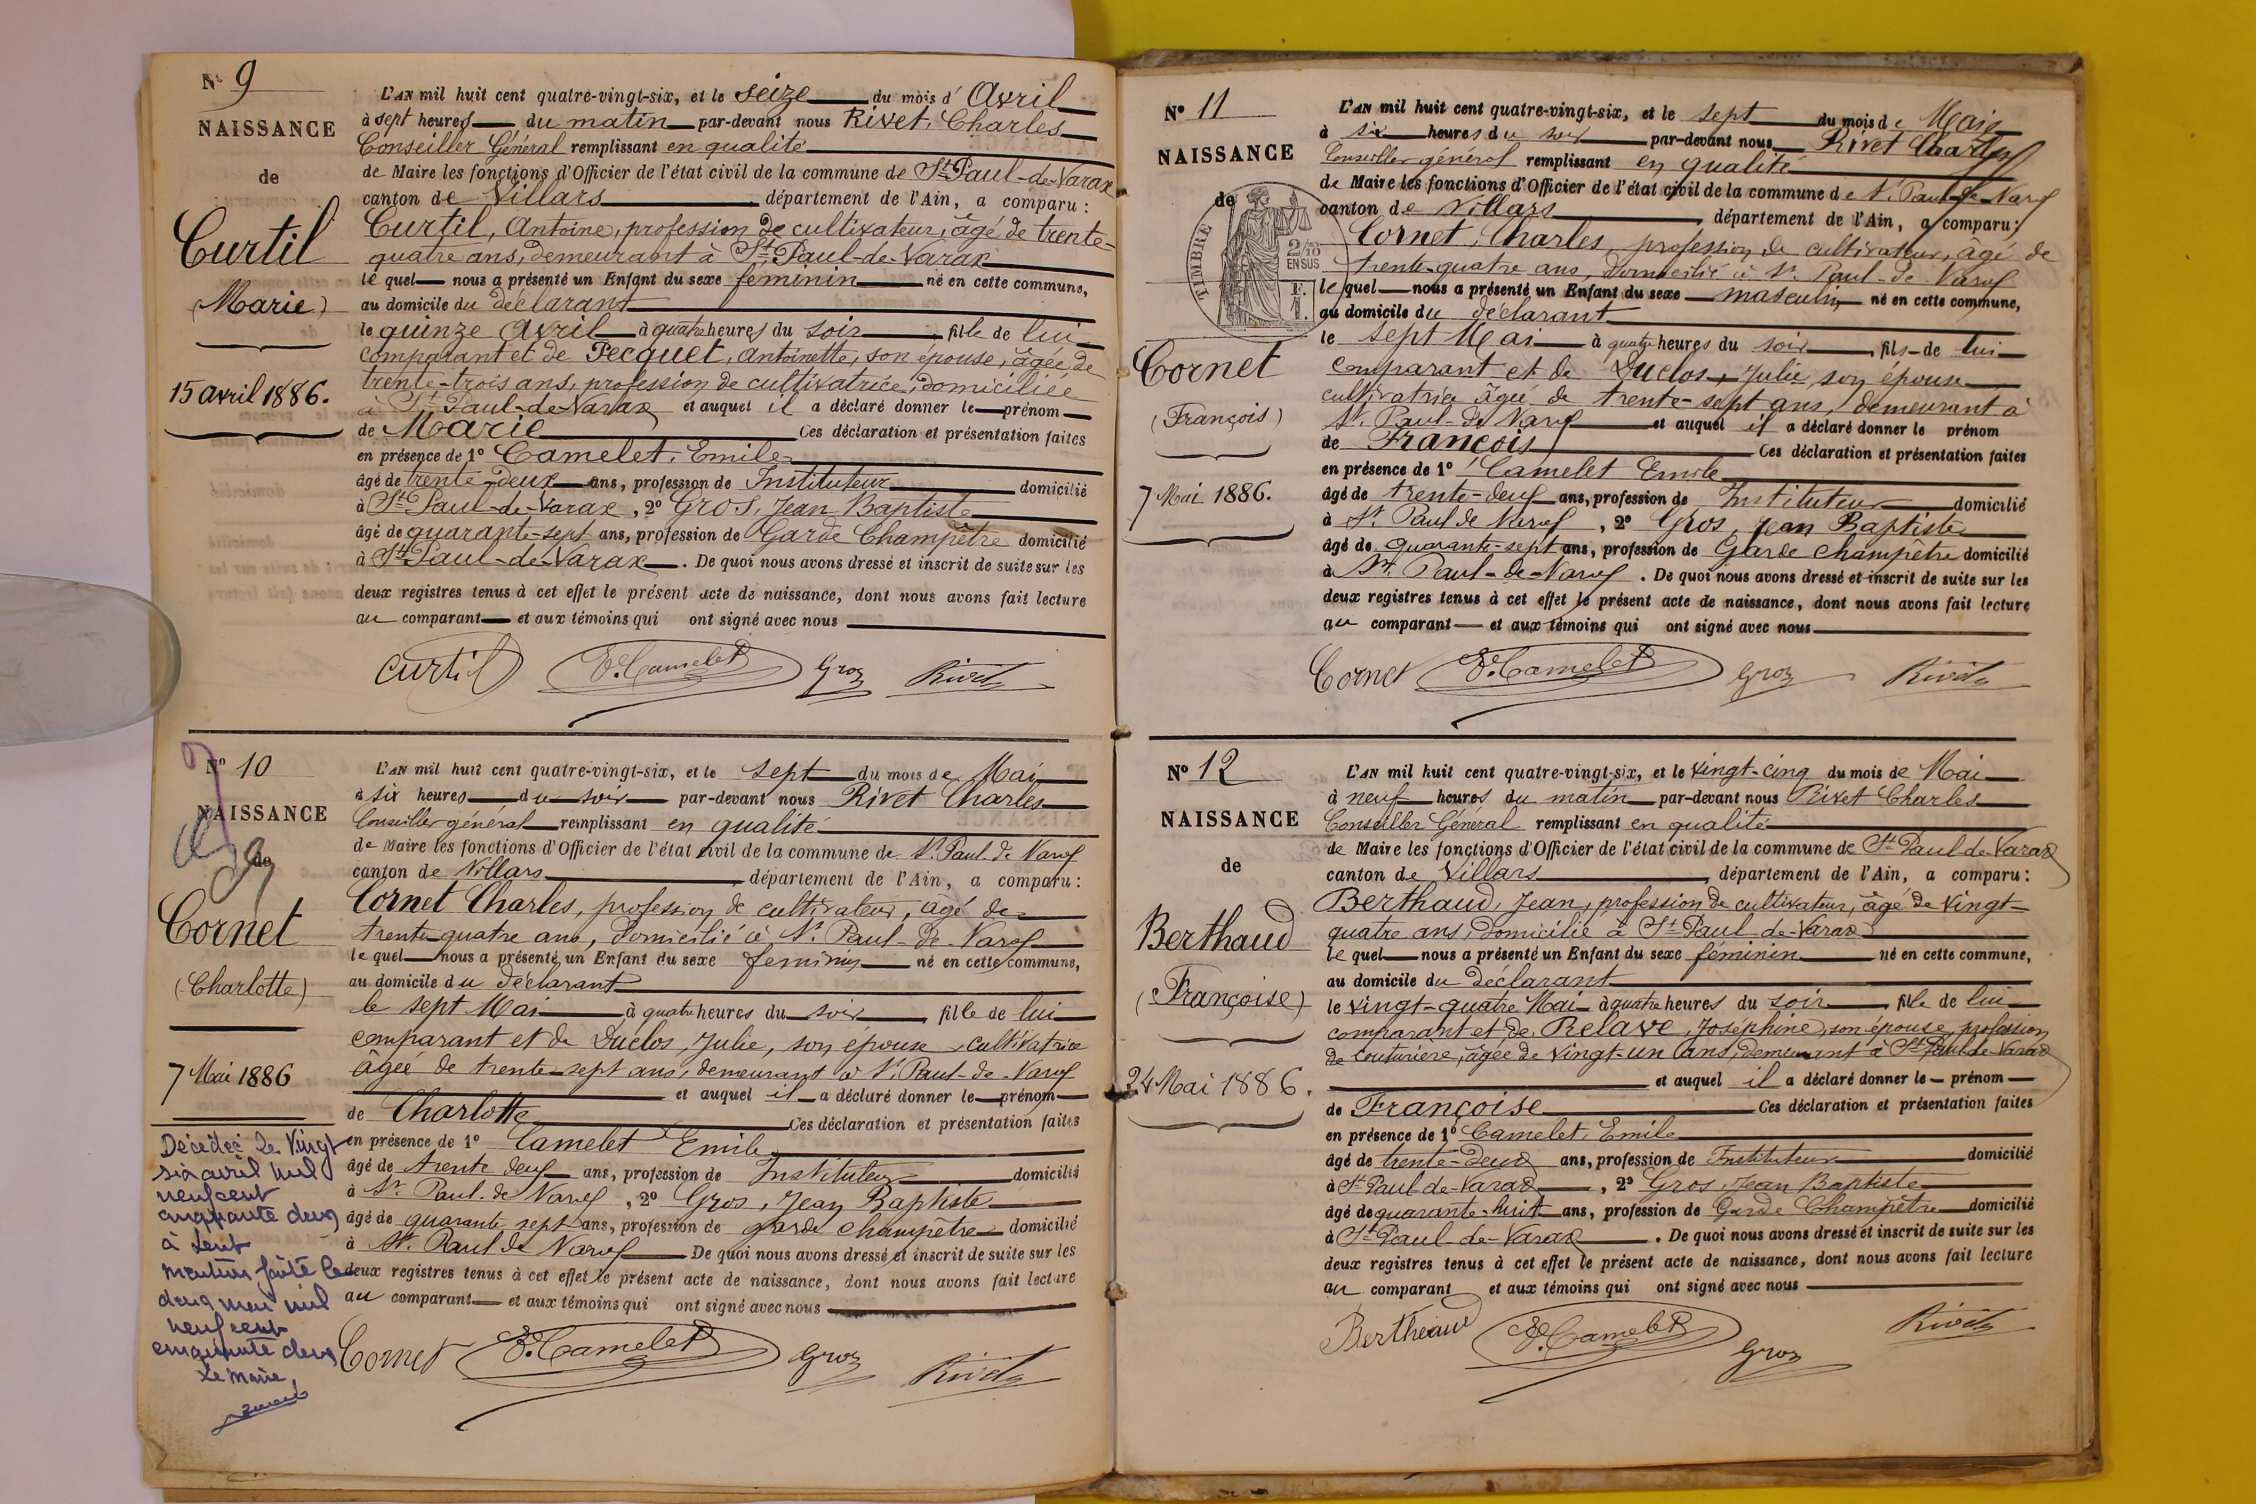 N° 9
NAISSANCE
de
Curtil
(Marie)
15 avril 1886.
L'AN mil huit cent quatre-vingt-six, et le seize du mois d'Avril
à sept heures du matin par-devant nous Rivet, Charles
Conseiller Général remplissant en qualité
de Maire les fonctions d'Officier de l'état civil de la commune de St Paul-de-Varax
canton de Villars département de l'Ain, a comparu :
Curtil, Antoine, profession de cultivateur, âgé de trente-
quatre ans, demeurant à St Paul-de-Varax
lequel nous a présenté un Enfant du sexe féminin né en cette commune,
au domicile du déclarant
le quinze Avril à quatre heures du soir, fille de lui
comparant et de Pecquet, Antoinette, son épouse, âgée de
trente-trois ans, profession de cultivatrice, domiciliée
à St Paul-de-Varax et auquel il a déclaré donner le prénom
de Marie Ces déclaration et présentation faites
en présence de 1° Camelet, Emile
âgé de trente-deux ans, profession de Instituteur domicilié
à St Paul-de-Varax, 2° Gros, Jean Baptiste
âgé de quarante-sept ans, profession de Garde Champêtre domicilié
à St Paul-de-Varax. De quoi nous avons dressé et inscrit de suite sur les
deux registres tenus à cet effet le présent acte de naissance, dont nous avons fait lecture
au comparant et aux témoins qui ont signé avec nous
Curtil E. Camelet Gros Rivet
N° 10
NAISSANCE
de
Cornet
(Charlotte)
7 Mai 1886
Décédée le vingt
six avril mil
neuf cent
cinquante deux
à
mention faite le
deux mai mil
neuf cent
cinquante deux
Le Maire,
L'AN mil huit cent quatre-vingt-six, et le sept du mois de Mai
à six heures du soir par-devant nous Rivet Charles
Conseiller général remplissant en qualité
de Maire les fonctions d'Officier de l'état civil de la commune de St Paul de Varax
canton de Villars département de l'Ain, a comparu :
Cornet Charles, profession de cultivateur, âgé de
trente-quatre ans, domicilié à St Paul-de-Varax
lequel nous a présenté un Enfant du sexe féminin né en cette commune,
au domicile du déclarant
le sept Mai à quatre heures du soir, fille de lui
comparant et de Duclos, Julie, son épouse, cultivatrice
âgée de trente-sept ans, demeurant à St Paul-de-Varax
et auquel il a déclaré donner le prénom
de Charlotte Ces déclaration et présentation faites
en présence de 1° Camelet Emile
âgé de trente deux ans, profession de Instituteur domicilié
à St Paul-de Varax, 2° Gros, Jean Baptiste
âgé de quarante sept ans, profession de garde champêtre domicilié
à St Paul de Varax De quoi nous avons dressé et inscrit de suite sur les
deux registres tenus à cet effet le présent acte de naissance, dont nous avons fait lecture
au comparant et aux témoins qui ont signé avec nous
Cornet E. Camelet Gros Rivet
N° 11
NAISSANCE
de
TIMBRE
2/10
EN SUS
F.
1.
Cornet
(François)
7 Mai 1886.
L'AN mil huit cent quatre-vingt-six, et le sept du mois de Mai
à six heures du soir par-devant nous Rivet Charles
Conseiller général remplissant en qualité
de Maire les fonctions d'Officier de l'état civil de la commune de St Paul-de Varax
canton de Villars département de l'Ain, a comparu :
Cornet, Charles, profession de cultivateur, âgé de
trente-quatre ans, domicilié à St Paul-de Varax
lequel nous a présenté un Enfant du sexe masculin né en cette commune,
au domicile du déclarant
le sept Mai à quatre heures du soir, fils de lui
comparant et de Duclos, Julie son épouse
cultivatrice âgée de trente-sept ans, demeurant à
St Paul-de Varax et auquel il a déclaré donner le prénom
de François Ces déclaration et présentation faites
en présence de 1° Camelet Emile
âgé de trente-deux ans, profession de Instituteur domicilié
à St Paul de Varax, 2° Gros, Jean Baptiste
âgé de quarante-sept ans, profession de Garde champêtre domicilié
à St Paul-de-Varax. De quoi nous avons dressé et inscrit de suite sur les
deux registres tenus à cet effet le présent acte de naissance, dont nous avons fait lecture
au comparant et aux témoins qui ont signé avec nous
Cornet E. Camelet Gros Rivet
N° 12
NAISSANCE
de
Berthaud
(Françoise)
24 Mai 1886.
L'AN mil huit cent quatre-vingt-six, et le vingt-cinq du mois de Mai
à neuf heures du matin par-devant nous Rivet Charles
Conseiller Général remplissant en qualité
de Maire les fonctions d'Officier de l'état civil de la commune de St Paul de Varax
canton de Villars, département de l'Ain, a comparu :
Berthaud, Jean, profession de cultivateur, âgé de vingt-
quatre ans, domicilié à St Paul-de-Varax
lequel nous a présenté un Enfant du sexe féminin né en cette commune,
au domicile du déclarant
le vingt-quatre Mai à quatre heures du soir, fille de lui
comparant et de Relave, Joséphine, son épouse, profession
de couturière, âgée de vingt-un ans, demeurant à St Paul-de-Varax
et auquel il a déclaré donner le prénom
de Françoise Ces déclaration et présentation faites
en présence de 1° Camelet, Emile
âgé de trente-deux ans, profession de Instituteur domicilié
à St Paul-de-Varax, 2° Gros, Jean Baptiste
âgé de quarante-huit ans, profession de Garde Champêtre domicilié
à St Paul-de-Varax. De quoi nous avons dressé et inscrit de suite sur les
deux registres tenus à cet effet le présent acte de naissance, dont nous avons fait lecture
au comparant et aux témoins qui ont signé avec nous
Bertheaud E. Camelet Gros Rivet